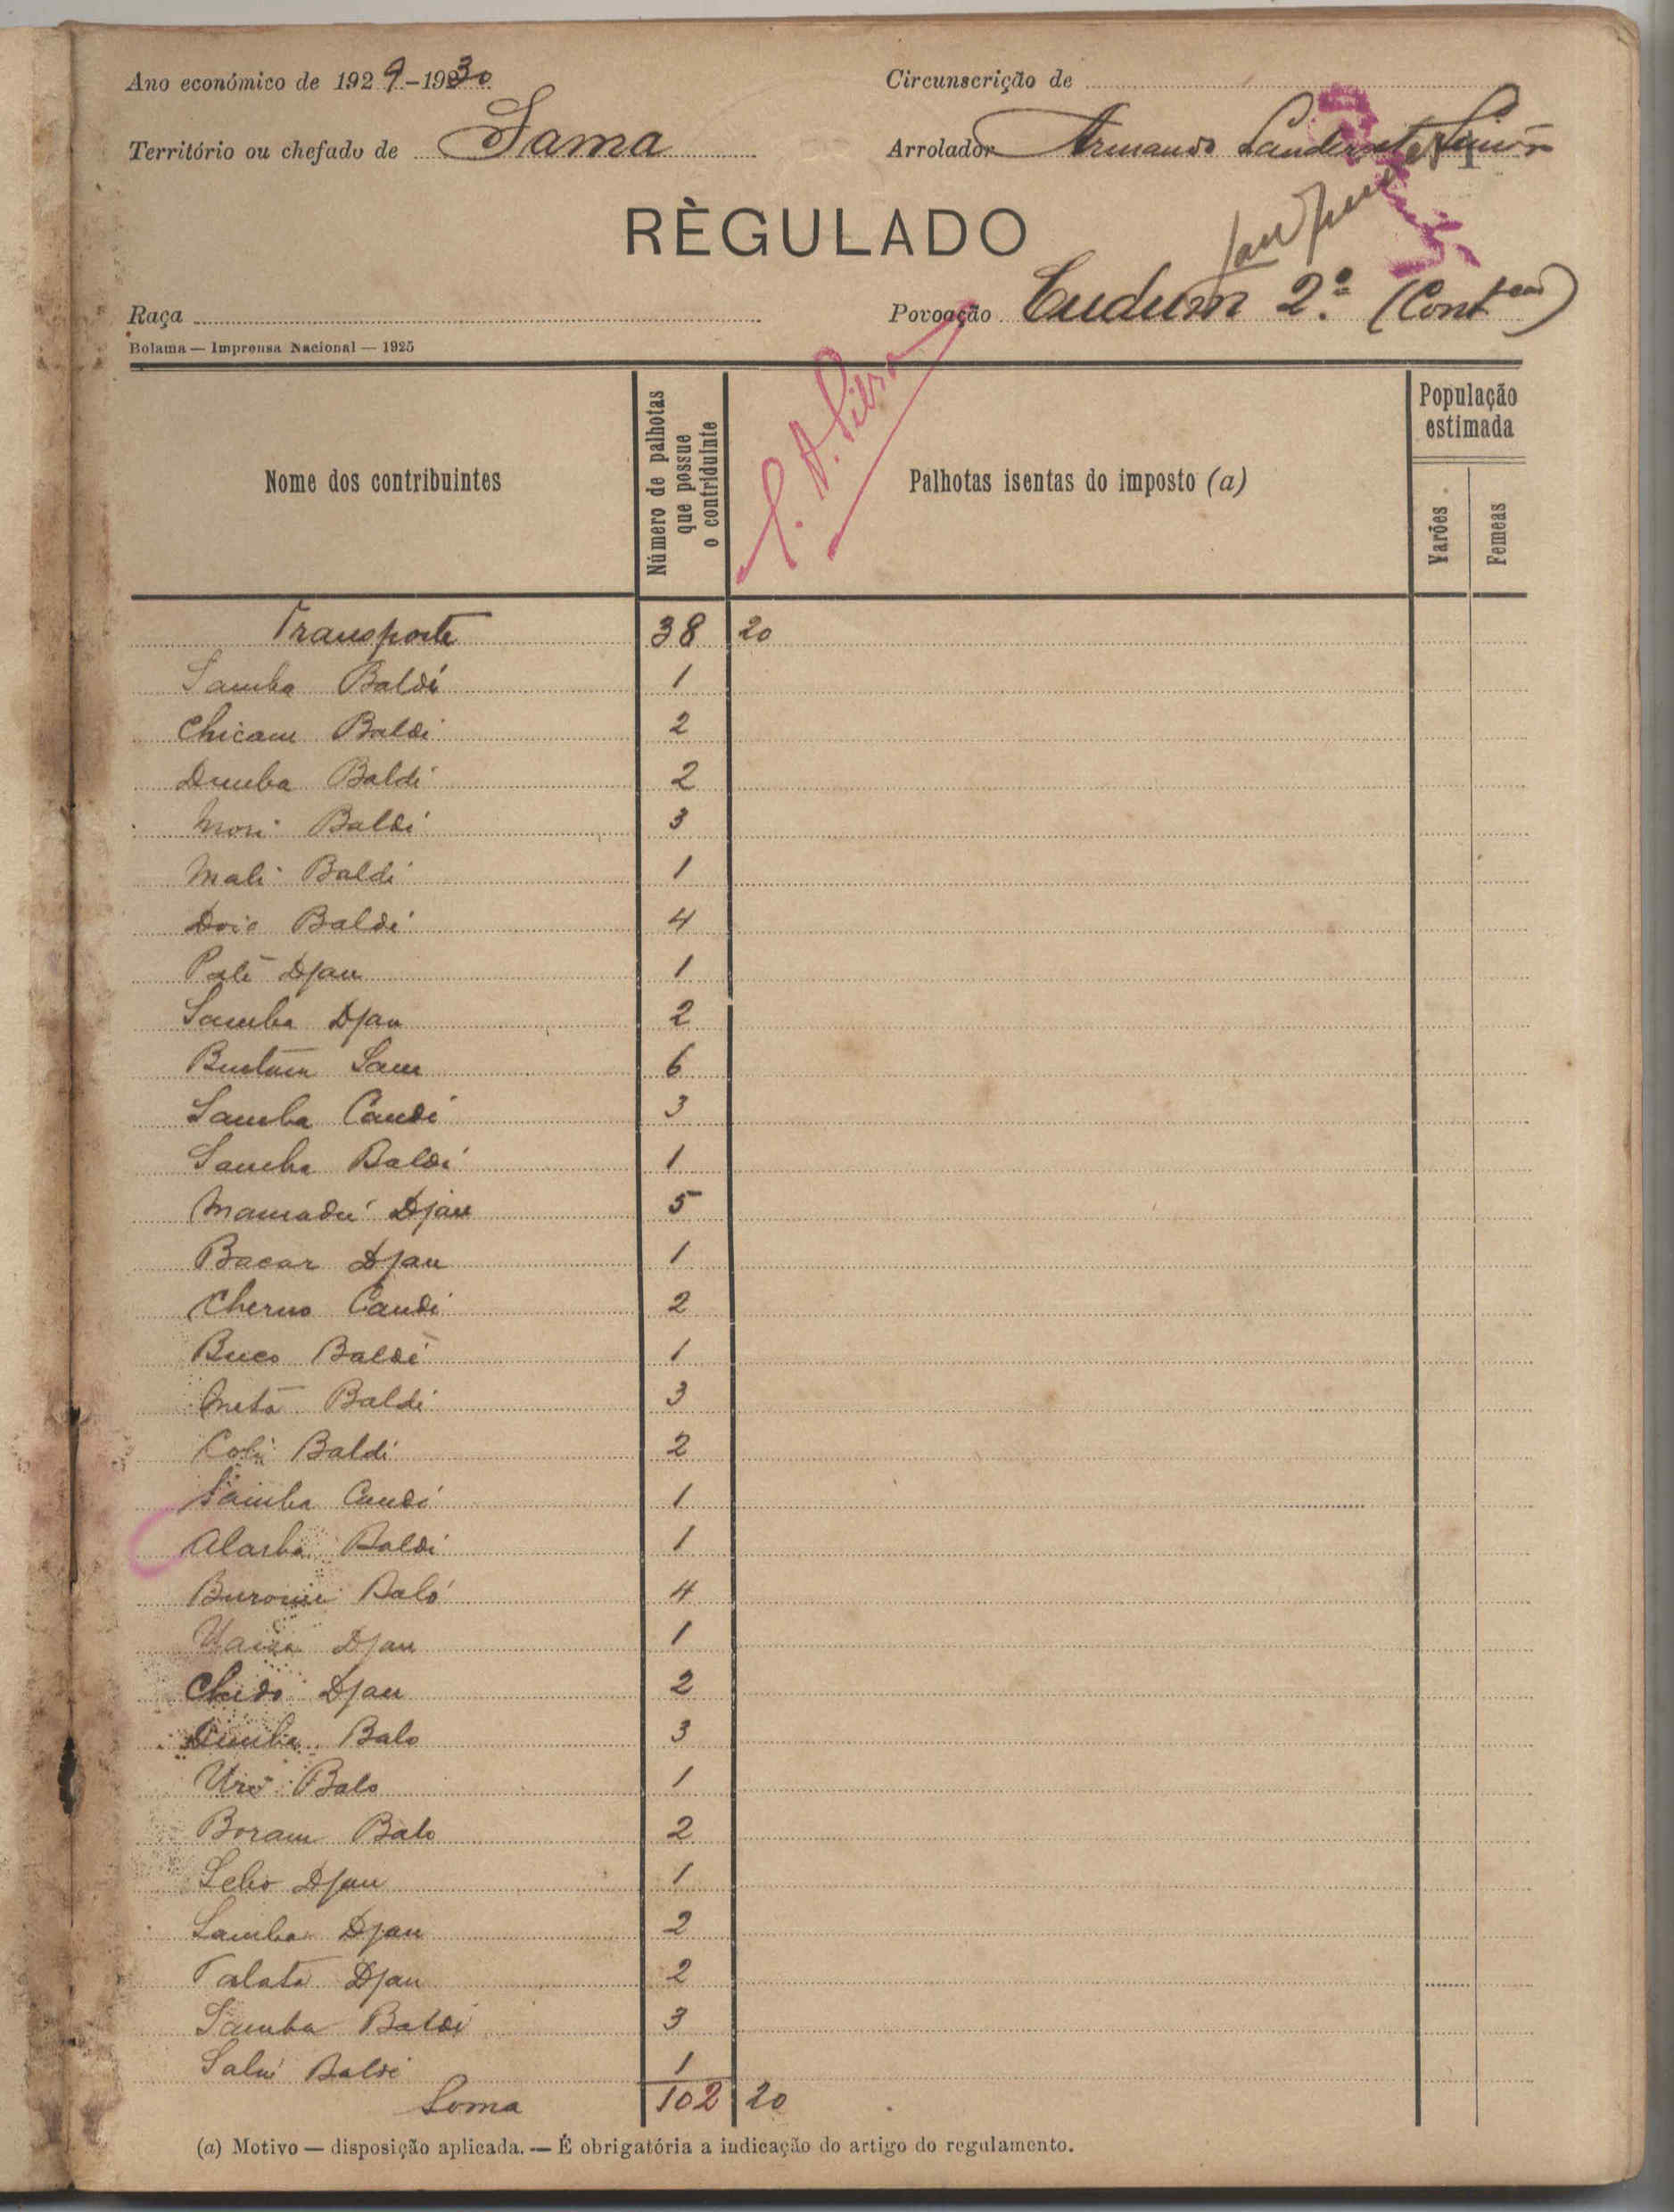 Ano económico de 1929-1930
Circunscrição de
Território ou chefado de Sama
Arrolador Armando
RÈGULADO
Raça
Povoação Cudum 2.º (Cont
Bolama — Imprensa Nacional — 1925
Nome dos contribuintes
Número de palhotas que possue o contriduinte
Palhotas isentas do imposto (a)
População estimada
Varões
Femeas
Transporte 38 20
Samba Baldé 1
Chicam Baldé 2
Demba Baldé 2
Mori Baldé 3
Mali Baldé 1
Baldé 4
Paté Djau 1
Samba Djau 2
6
Samba Candé 3
Samba Baldé 1
Mamadú Djau 5
Bacar Djau 1
Cherno Candé 2
Buco Baldé 1
Metá Baldé 3
Baldé 2
Samba Candé 1
Alarba Baldé 1
Baló 4
Djau 1
Chido Djau 2
Demba Balo 3
Uro Balo 1
Boram Balo 2
Djau 1
Samba Djau 2
Talata Djau 2
Samba Baldé 3
Baldé 1
Soma 102 20
(a) Motivo — disposição aplicada. — É obrigatória a indicação do artigo do regulamento.